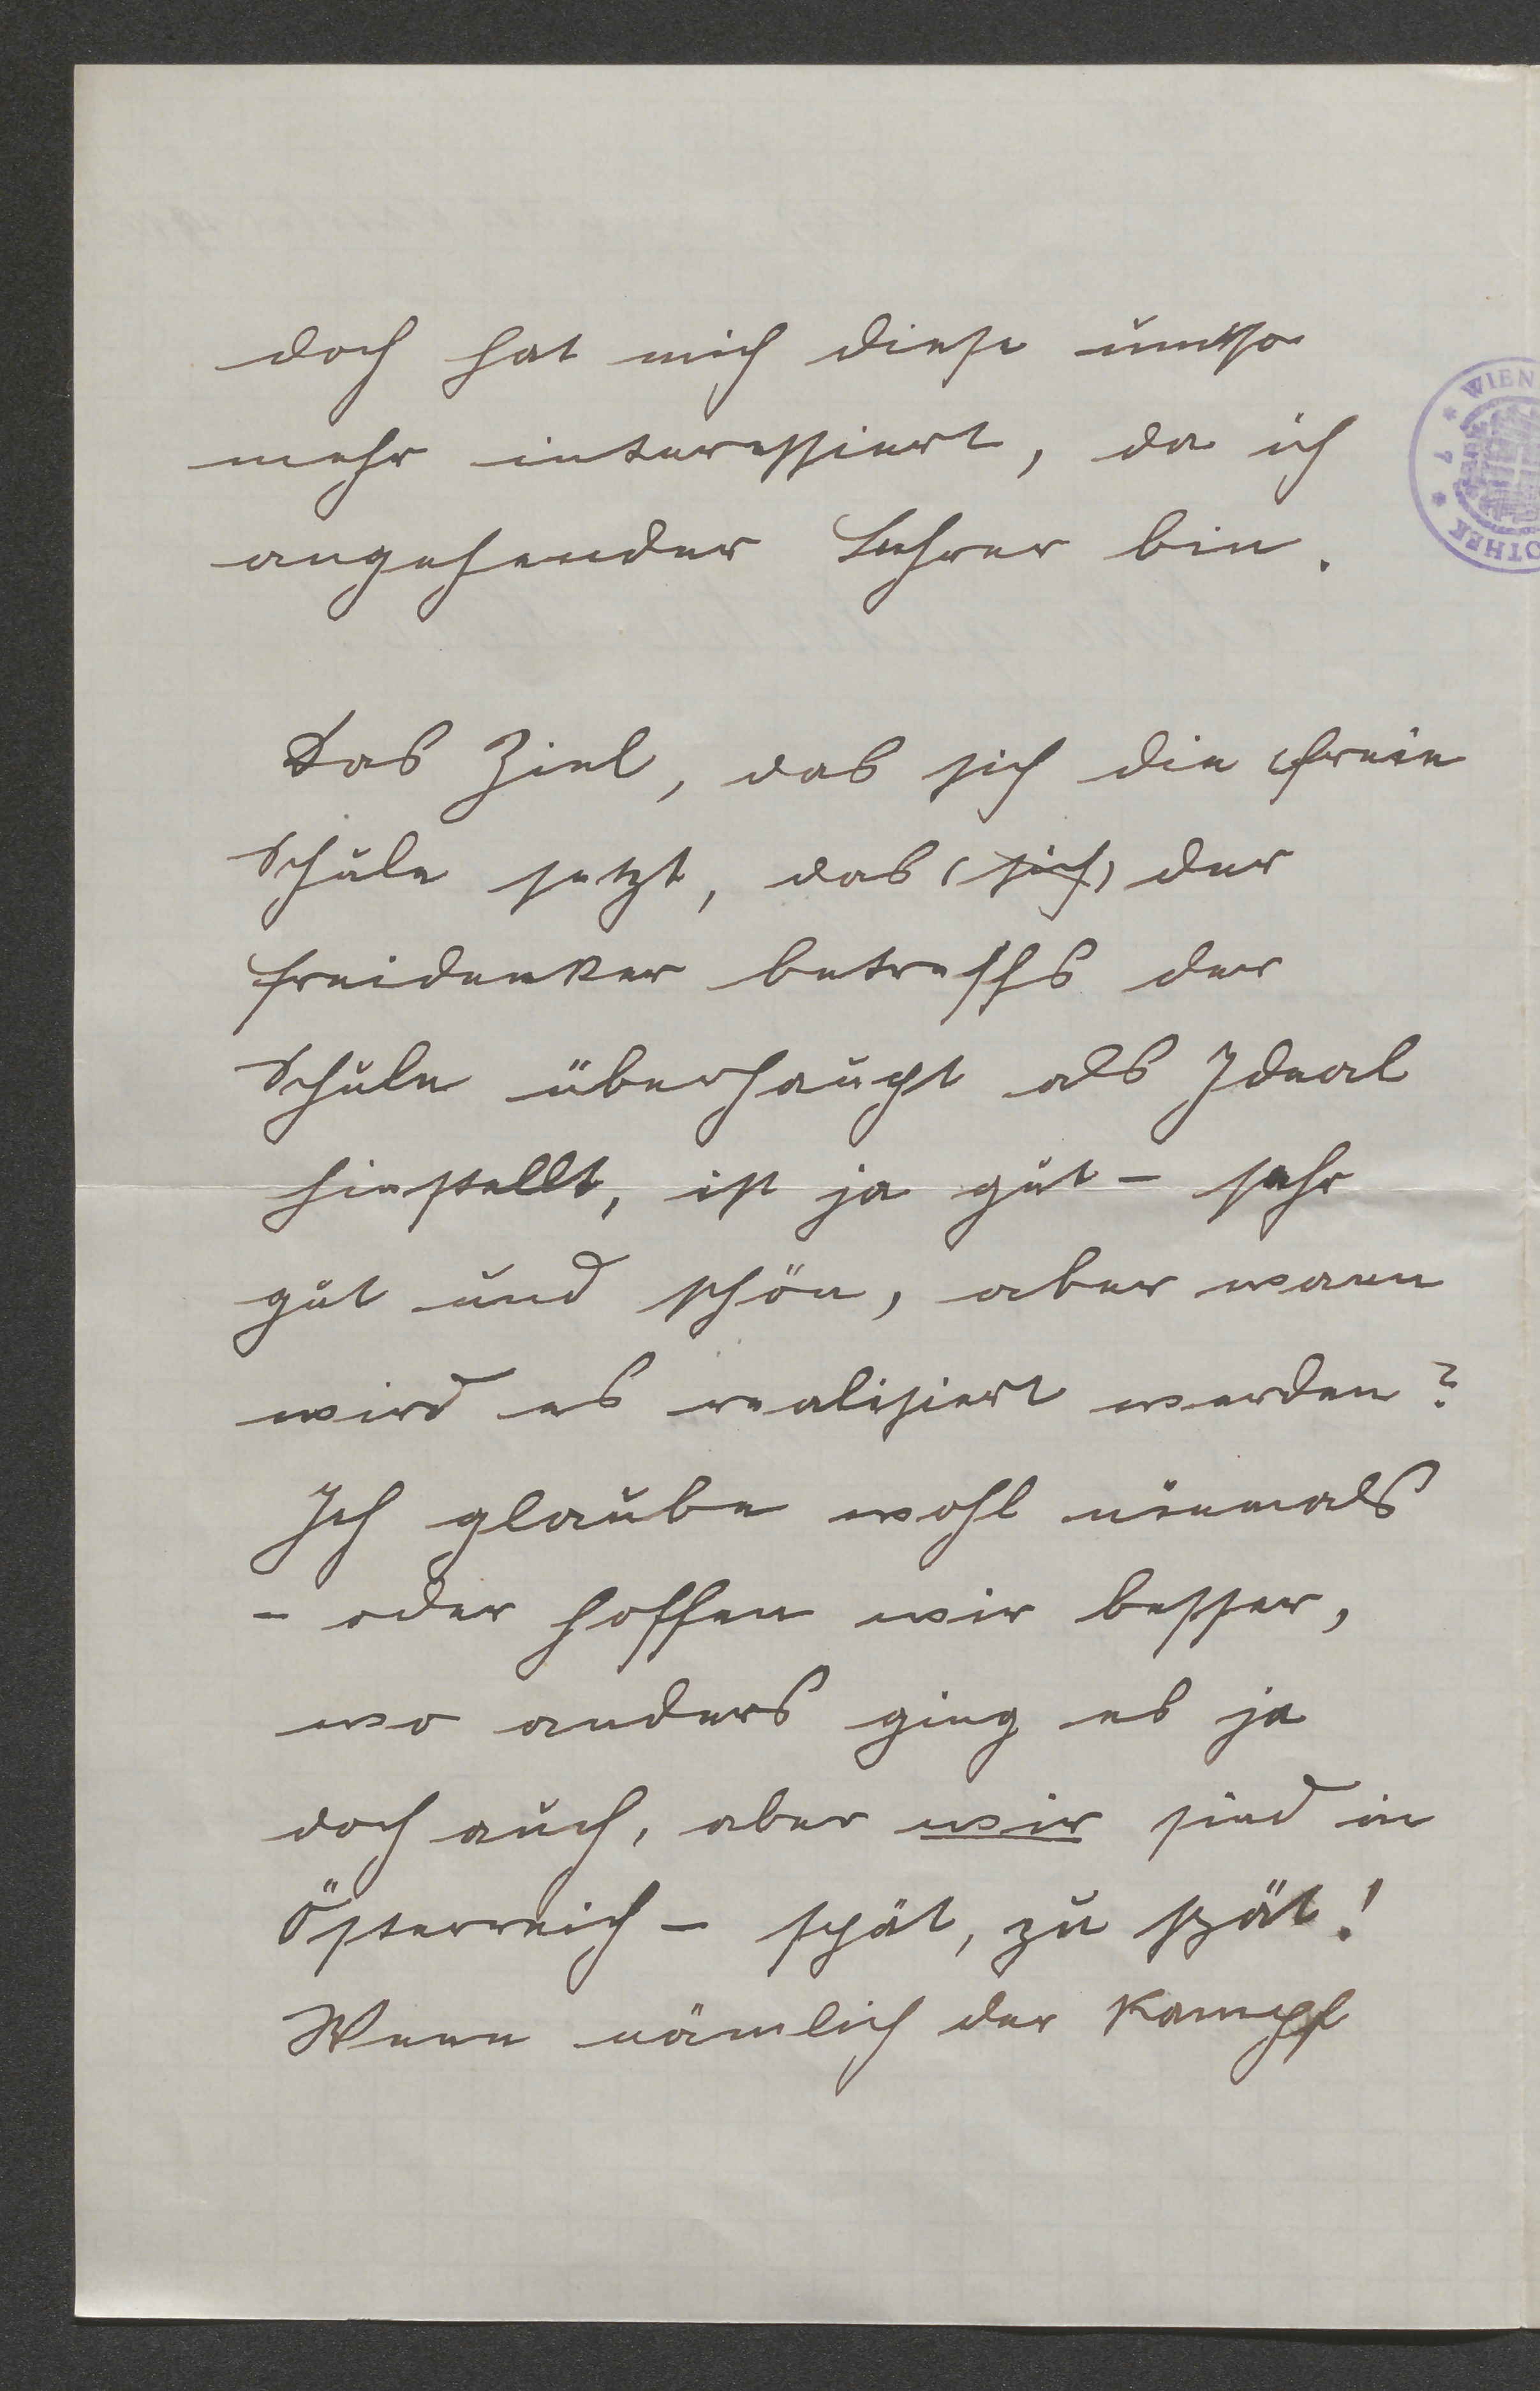 doch hat mich diese umso
mehr interessiert, da ich
angehender Lehrer bin.
Das Ziel, das sich die freie
Schule setzt, das (sich) der
Freidenker betreffs der
Schule überhaupt als Ideal
hinstellt, ist ja gut – sehr
gut und schön, aber wann
wird es realisiert werden?
Ich glaube wohl niemals
– oder hoffen wir besser,
wo anders ging es ja
doch auch, aber wir sind in
Österreich – spät, zu spät!
Wenn nämlich der Kampf
WIEN